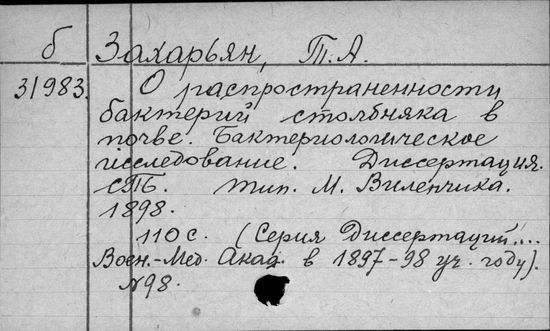 б Захарьян, Т.А.
31983. О распространенности
бактерий столбняка в
почве. Бактериологическое
исследование. Диссертация.
СПБ. тип. М. Виленчика.
1898.
110 с. (Серия Диссертаций....
Воен.-Мед. Акад. в 1897-98 уч. году).
№98.